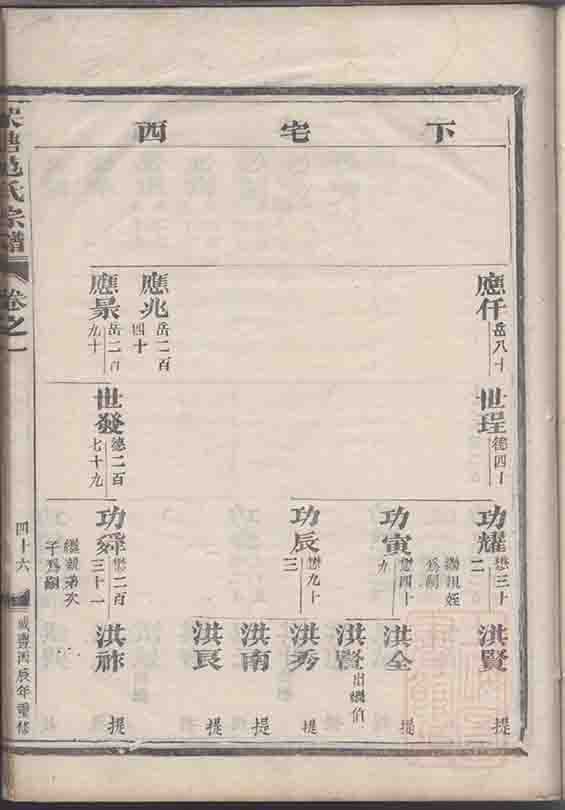 下宅西
應仟
岳八十
應兆
岳二百
四十
應景
岳二百
九十
世珵
德四十
世發
德二百
七十九
功耀
懋三十
二
繼親姪
為嗣
功寅
懋四十
九
功辰
懋九十
三
功舜
懋二百
三十一
繼親弟次
子為嗣
洪賢
提
洪全
提
洪賢
仝出繼伯
洪秀
提
洪南
提
洪良
提
洪祚
提
范氏宗譜
卷之一
四十六
咸豐丙辰年重修